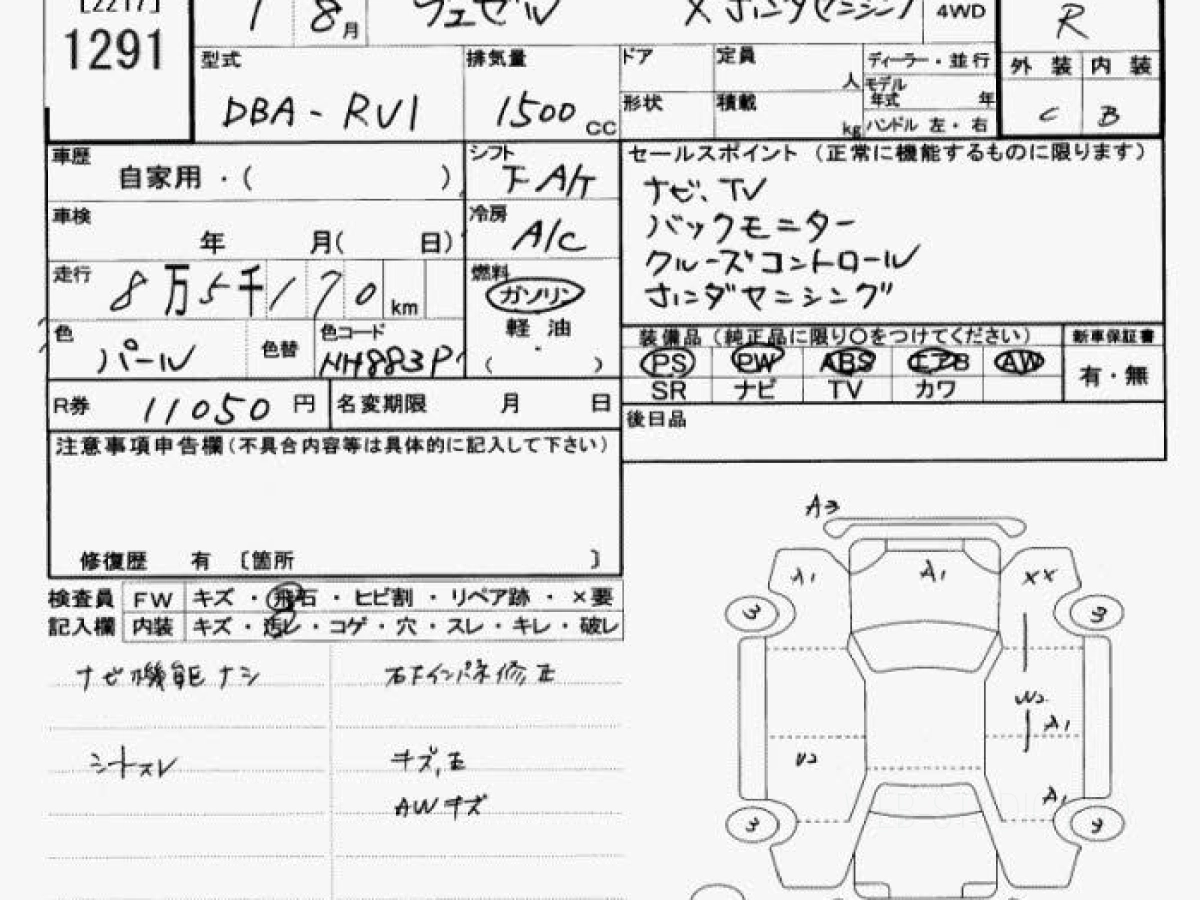 [2217]
1291
1 8月 ヴェゼル X ホンダセンシング 4WD
R
型式 排気量 ドア 定員 人 ディーラー・並行 外装 内装
DBA-RV1 1500 CC 形状 積載 kg モデル年式 年 C B
ハンドル 左・右
車歴 自家用・( ) シフト F A/T
セールスポイント(正常に機能するものに限ります)
ナビ、TV
車検 年 月( 日) 冷房 A/C
バックモニター
クルーズコントロール
ホンダセンシング
走行 8万5千170 km 燃料 ガソリン
軽油
( )
色 パール 色替 色コード NH883P
装備品(純正品に限り〇をつけてください) 新車保証書
PS PW ABS エアB AW 有・無
SR ナビ TV カワ
R券 11050 円 名変期限 月 日
後日品
注意事項申告欄(不具合内容等は具体的に記入して下さい)
修復歴 有 〔箇所 〕
検査員 FW キズ・飛石・ヒビ割・リペア跡・×要
記入欄 内装 キズ・汚レ・コゲ・穴・スレ・キレ・破レ
ナビ機能ナシ 右Fインパネ修正
シートスレ キズ,正
AWキズ
A3
A1 A1 XX
3 3
W2
A1
U2
A1
3 3